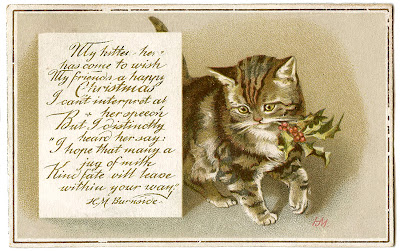 My kitten here
has come to wish
My friends a happy
Christmas
I can't interpret all
her speech
But, I distinctly
heard her say:
"I hope that many a
jug of milk
Kind fate will leave
within your way"
H.M. Burnside